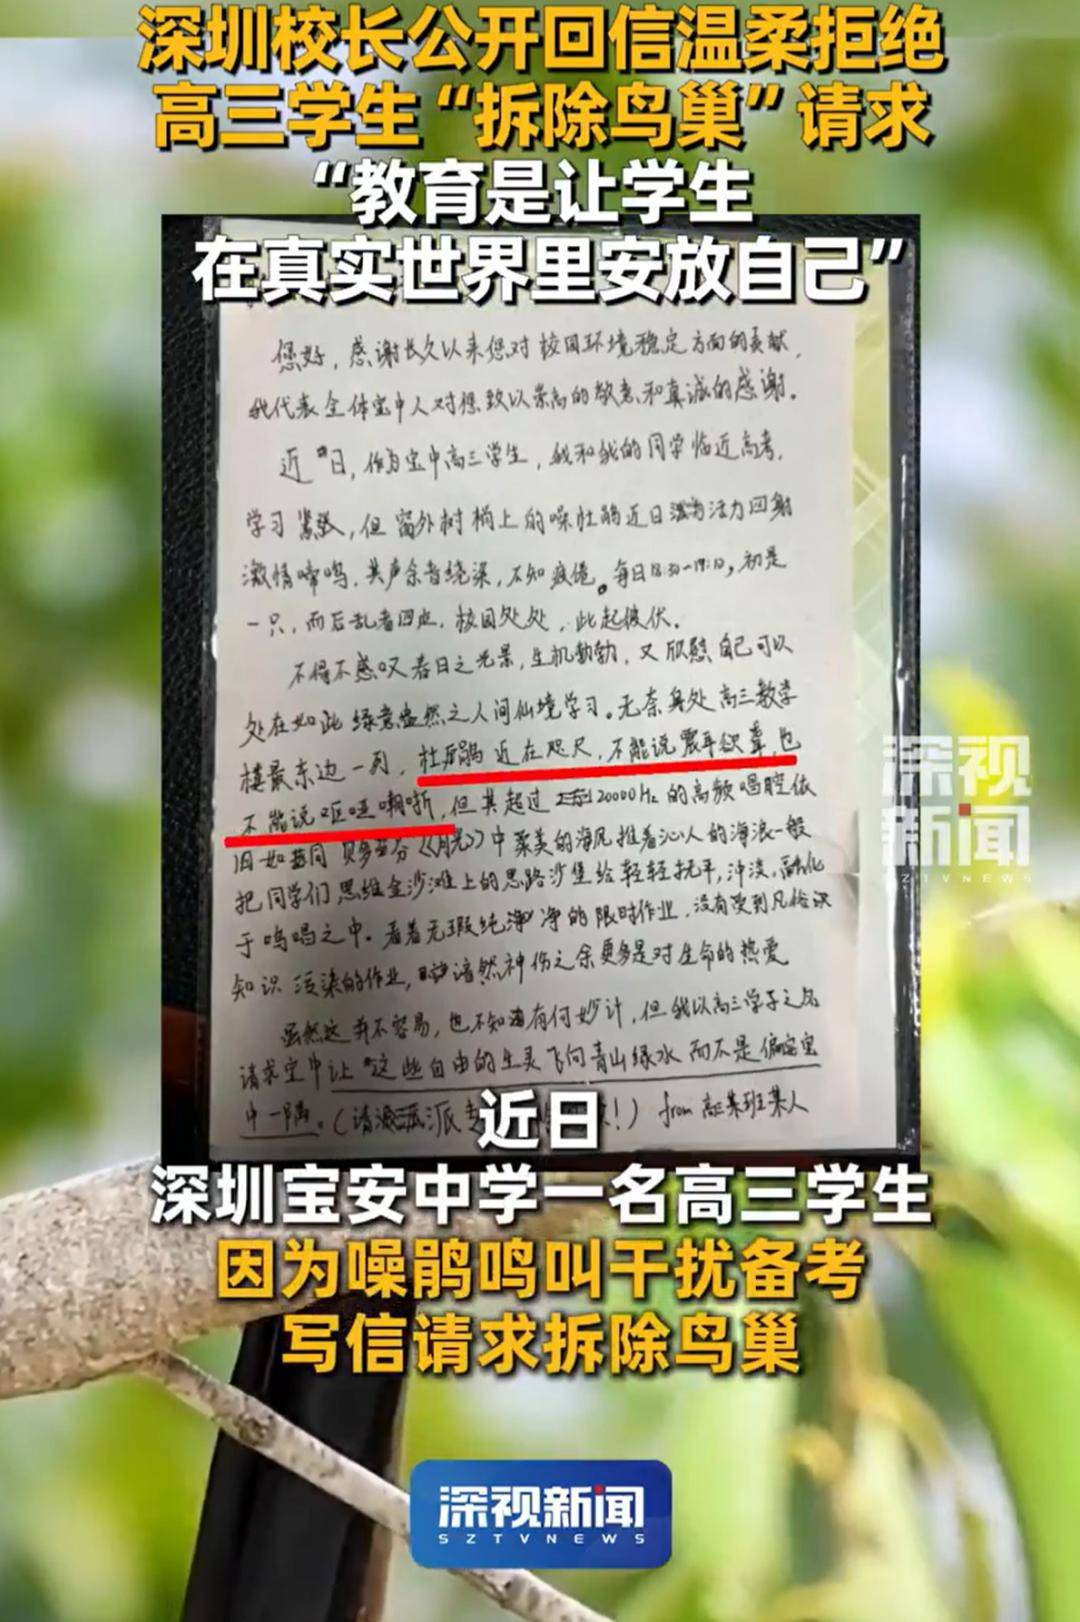 深圳校长公开回信温柔拒绝
高三学生“拆除鸟巢”请求
“教育是让学生
在真实世界里安放自己”
您好，感谢长久以来您对校园环境稳定方面的贡献，
我代表全体宝中人对您致以崇高的敬意和真诚的感谢。
近日，作为宝中高三学生，我和我的同学临近高考，
学习紧张，但窗外树梢上的噪杜鹃近日活力四射
激情啼鸣，其声余音绕梁，不知疲倦。每日18:30-19:10，初是
一只，而后乱者四应，校园处处，此起彼伏。
不得不感叹春日之光景，生机勃勃，又欣慰自己可以
处在如此绿意盎然之人间仙境学习。无奈身处高三教学
楼最东边一列，杜鹃近在咫尺，不能说震耳欲聋，也
不能说呕哑嘲哳，但其超过20000Hz的高频唱腔依
旧如同贝多芬《月光》中柔美的海风推着沁人的海浪一般
把同学们思维金沙滩上的思路沙堡给轻轻抚平，冲淡，融化
于鸣唱之中。看着无瑕纯净的限时作业，没有受到凡俗
知识污染的作业，黯然神伤之余更多是对生命的热爱
虽然这并不容易，也不知有何妙计，但我以高三学子之名
请求宝中让这些自由的生灵飞向青山绿水而不是偏安宝
中一隅。（请派！）from 高三某班某人
深视
新闻
SZTVNEWS
近日
深圳宝安中学一名高三学生
因为噪鹃鸣叫干扰备考
写信请求拆除鸟巢
深视新闻
SZTVNEWS